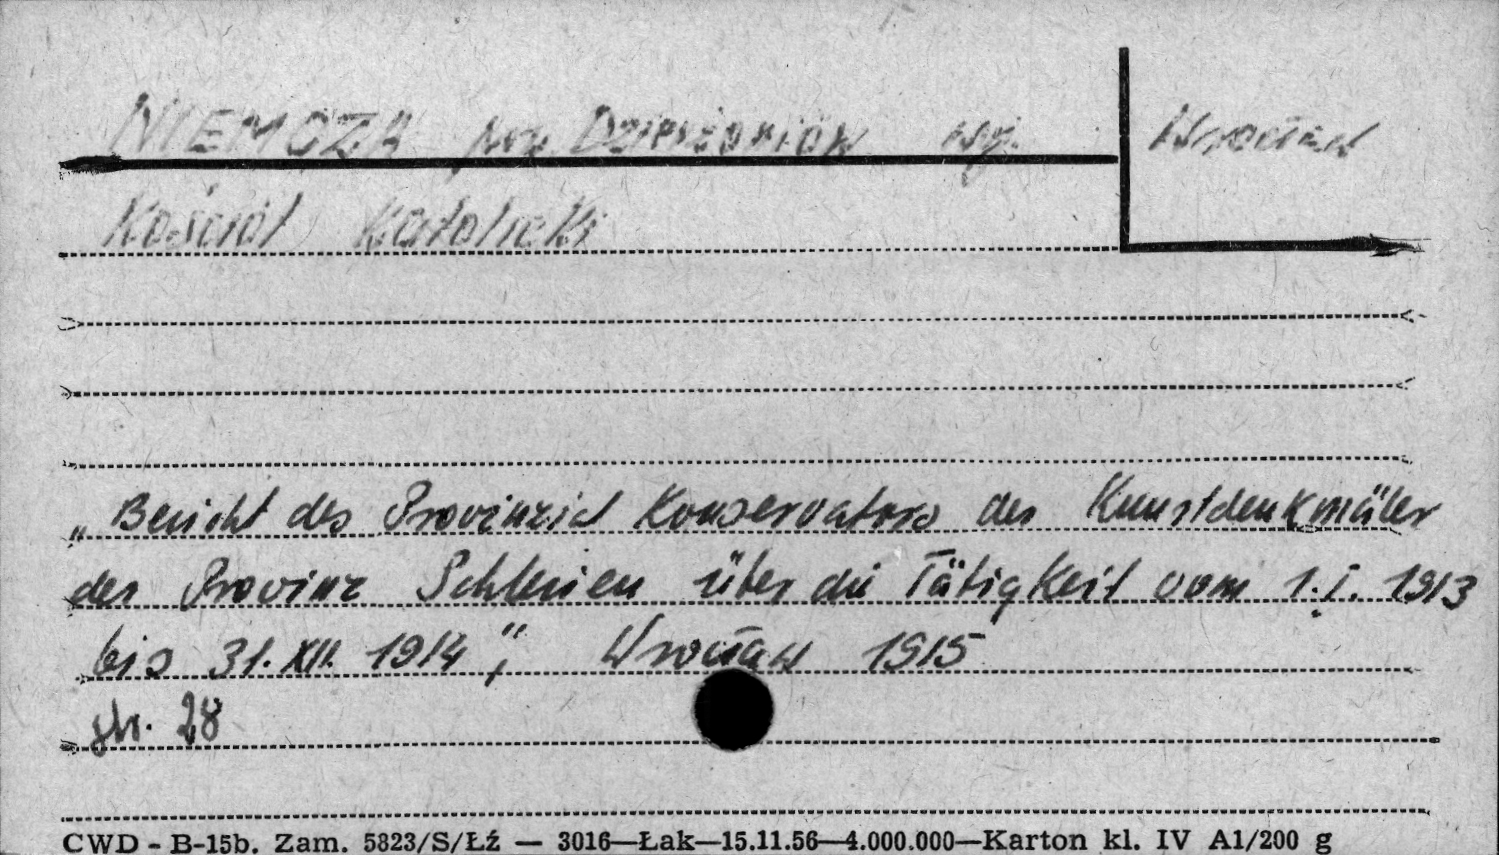 NIEMCZA pow. Dzierżoniów woj. Wrocław
Kościół Katolicki
„Bericht des Provinzial Konservators der Kunstdenkmäler
der Provinz Schlesien über die Tätigkeit vom 1.I. 1913
bis 31.XII. 1914", Wrocław 1915
str. 28
CWD - B-15b. Zam. 5823/S/Łź — 3016—Łak—15.11.56—4.000.000—Karton kl. IV A1/200 g